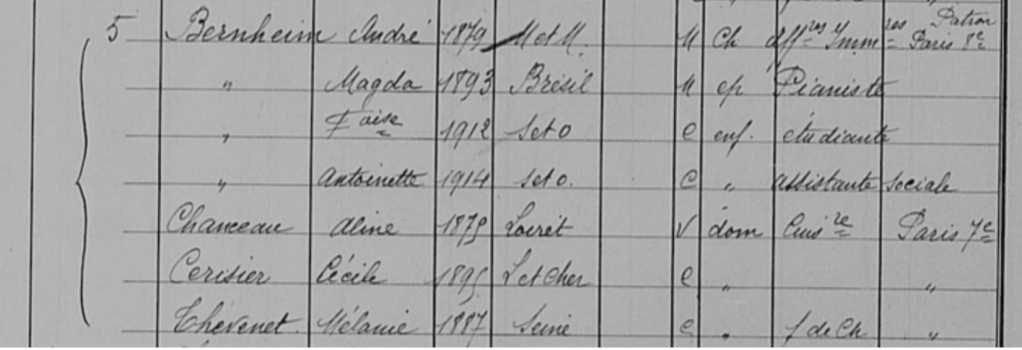 5 Bernheim André 1879 M et M. M Ch aff res Imm res Patron Paris 8e
" Magda 1893 Brésil M ep Pianiste
" Fçaise 1912 S et O C enf. étudiante
" Antoinette 1914 S et O. C " assistante sociale
Chanceau Aline 1875 Loiret V dom Cuis re Paris 7e
Cerisier Cécile 1895 L et Cher C " "
Thevenet Mélanie 1887 Seine C " f de Ch "